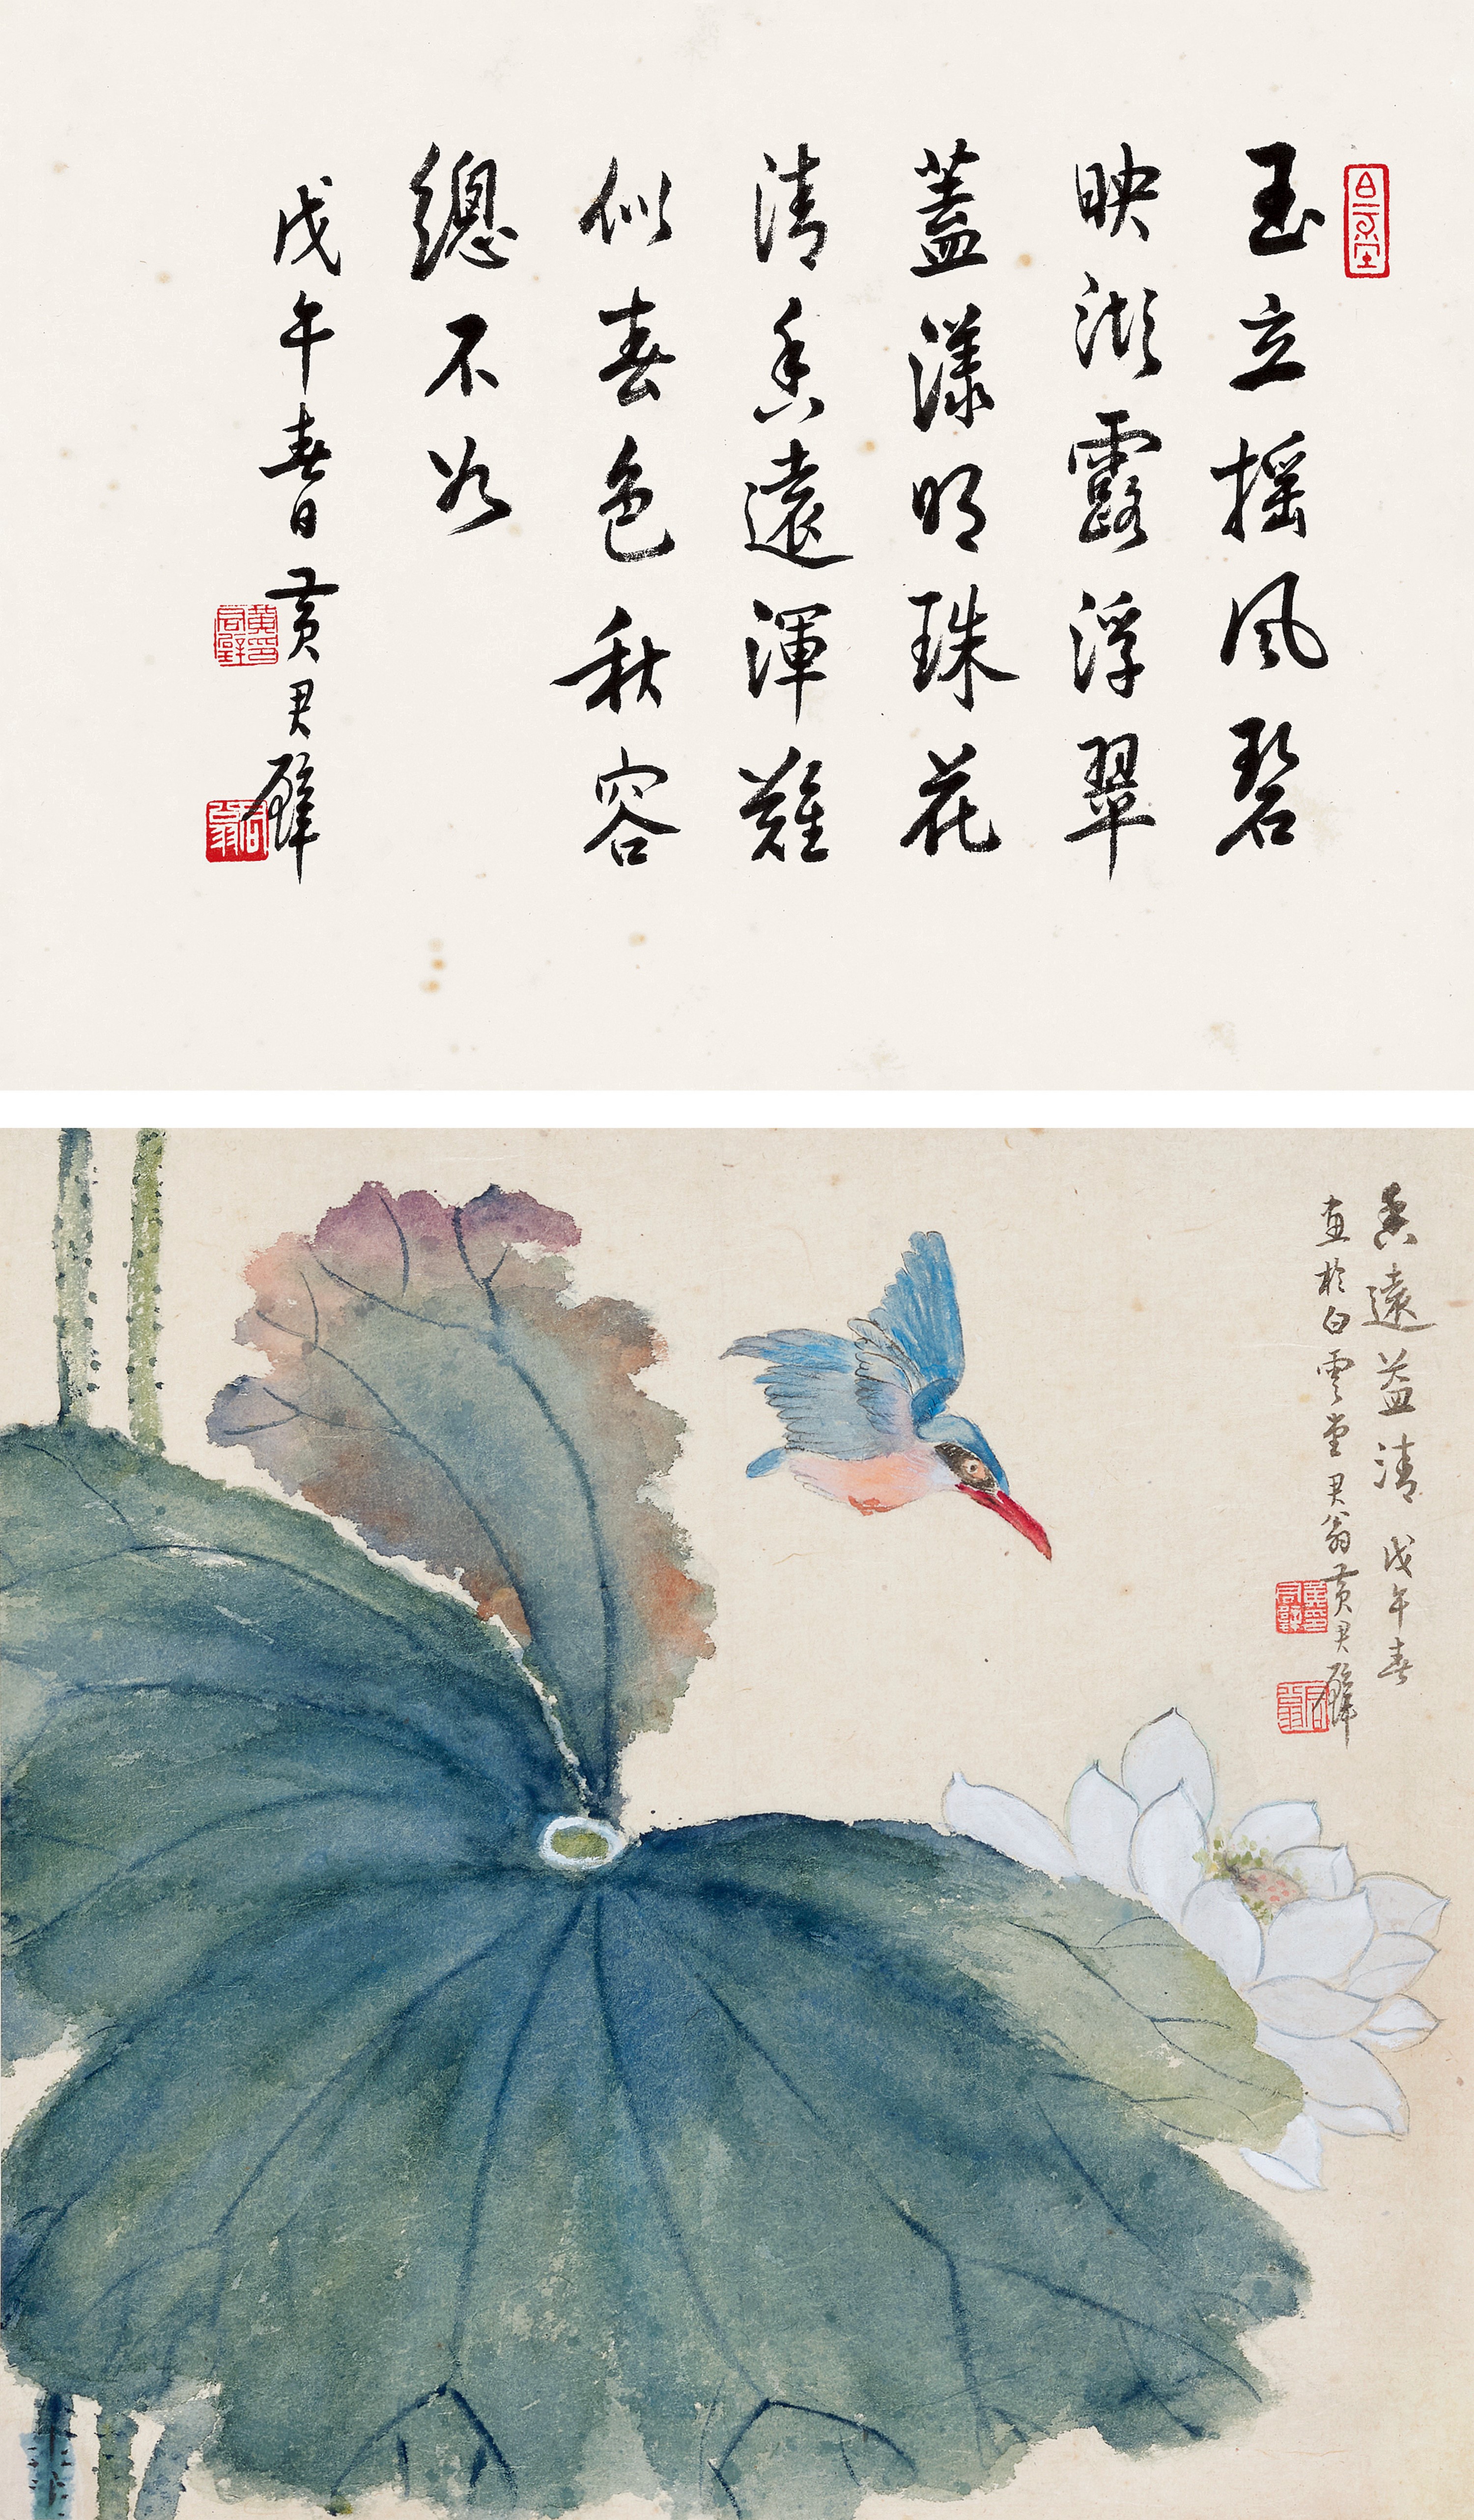 玉立搖風碧
映湖露浮翠
蓋漾明珠花
清香遠渾難
似春色秋容
總不如
戊午春日黃君璧
白雲堂
黃君璧印
君翁
香遠益清 戊午春
畫於白雲堂君翁黃君璧
黃君璧印
君翁